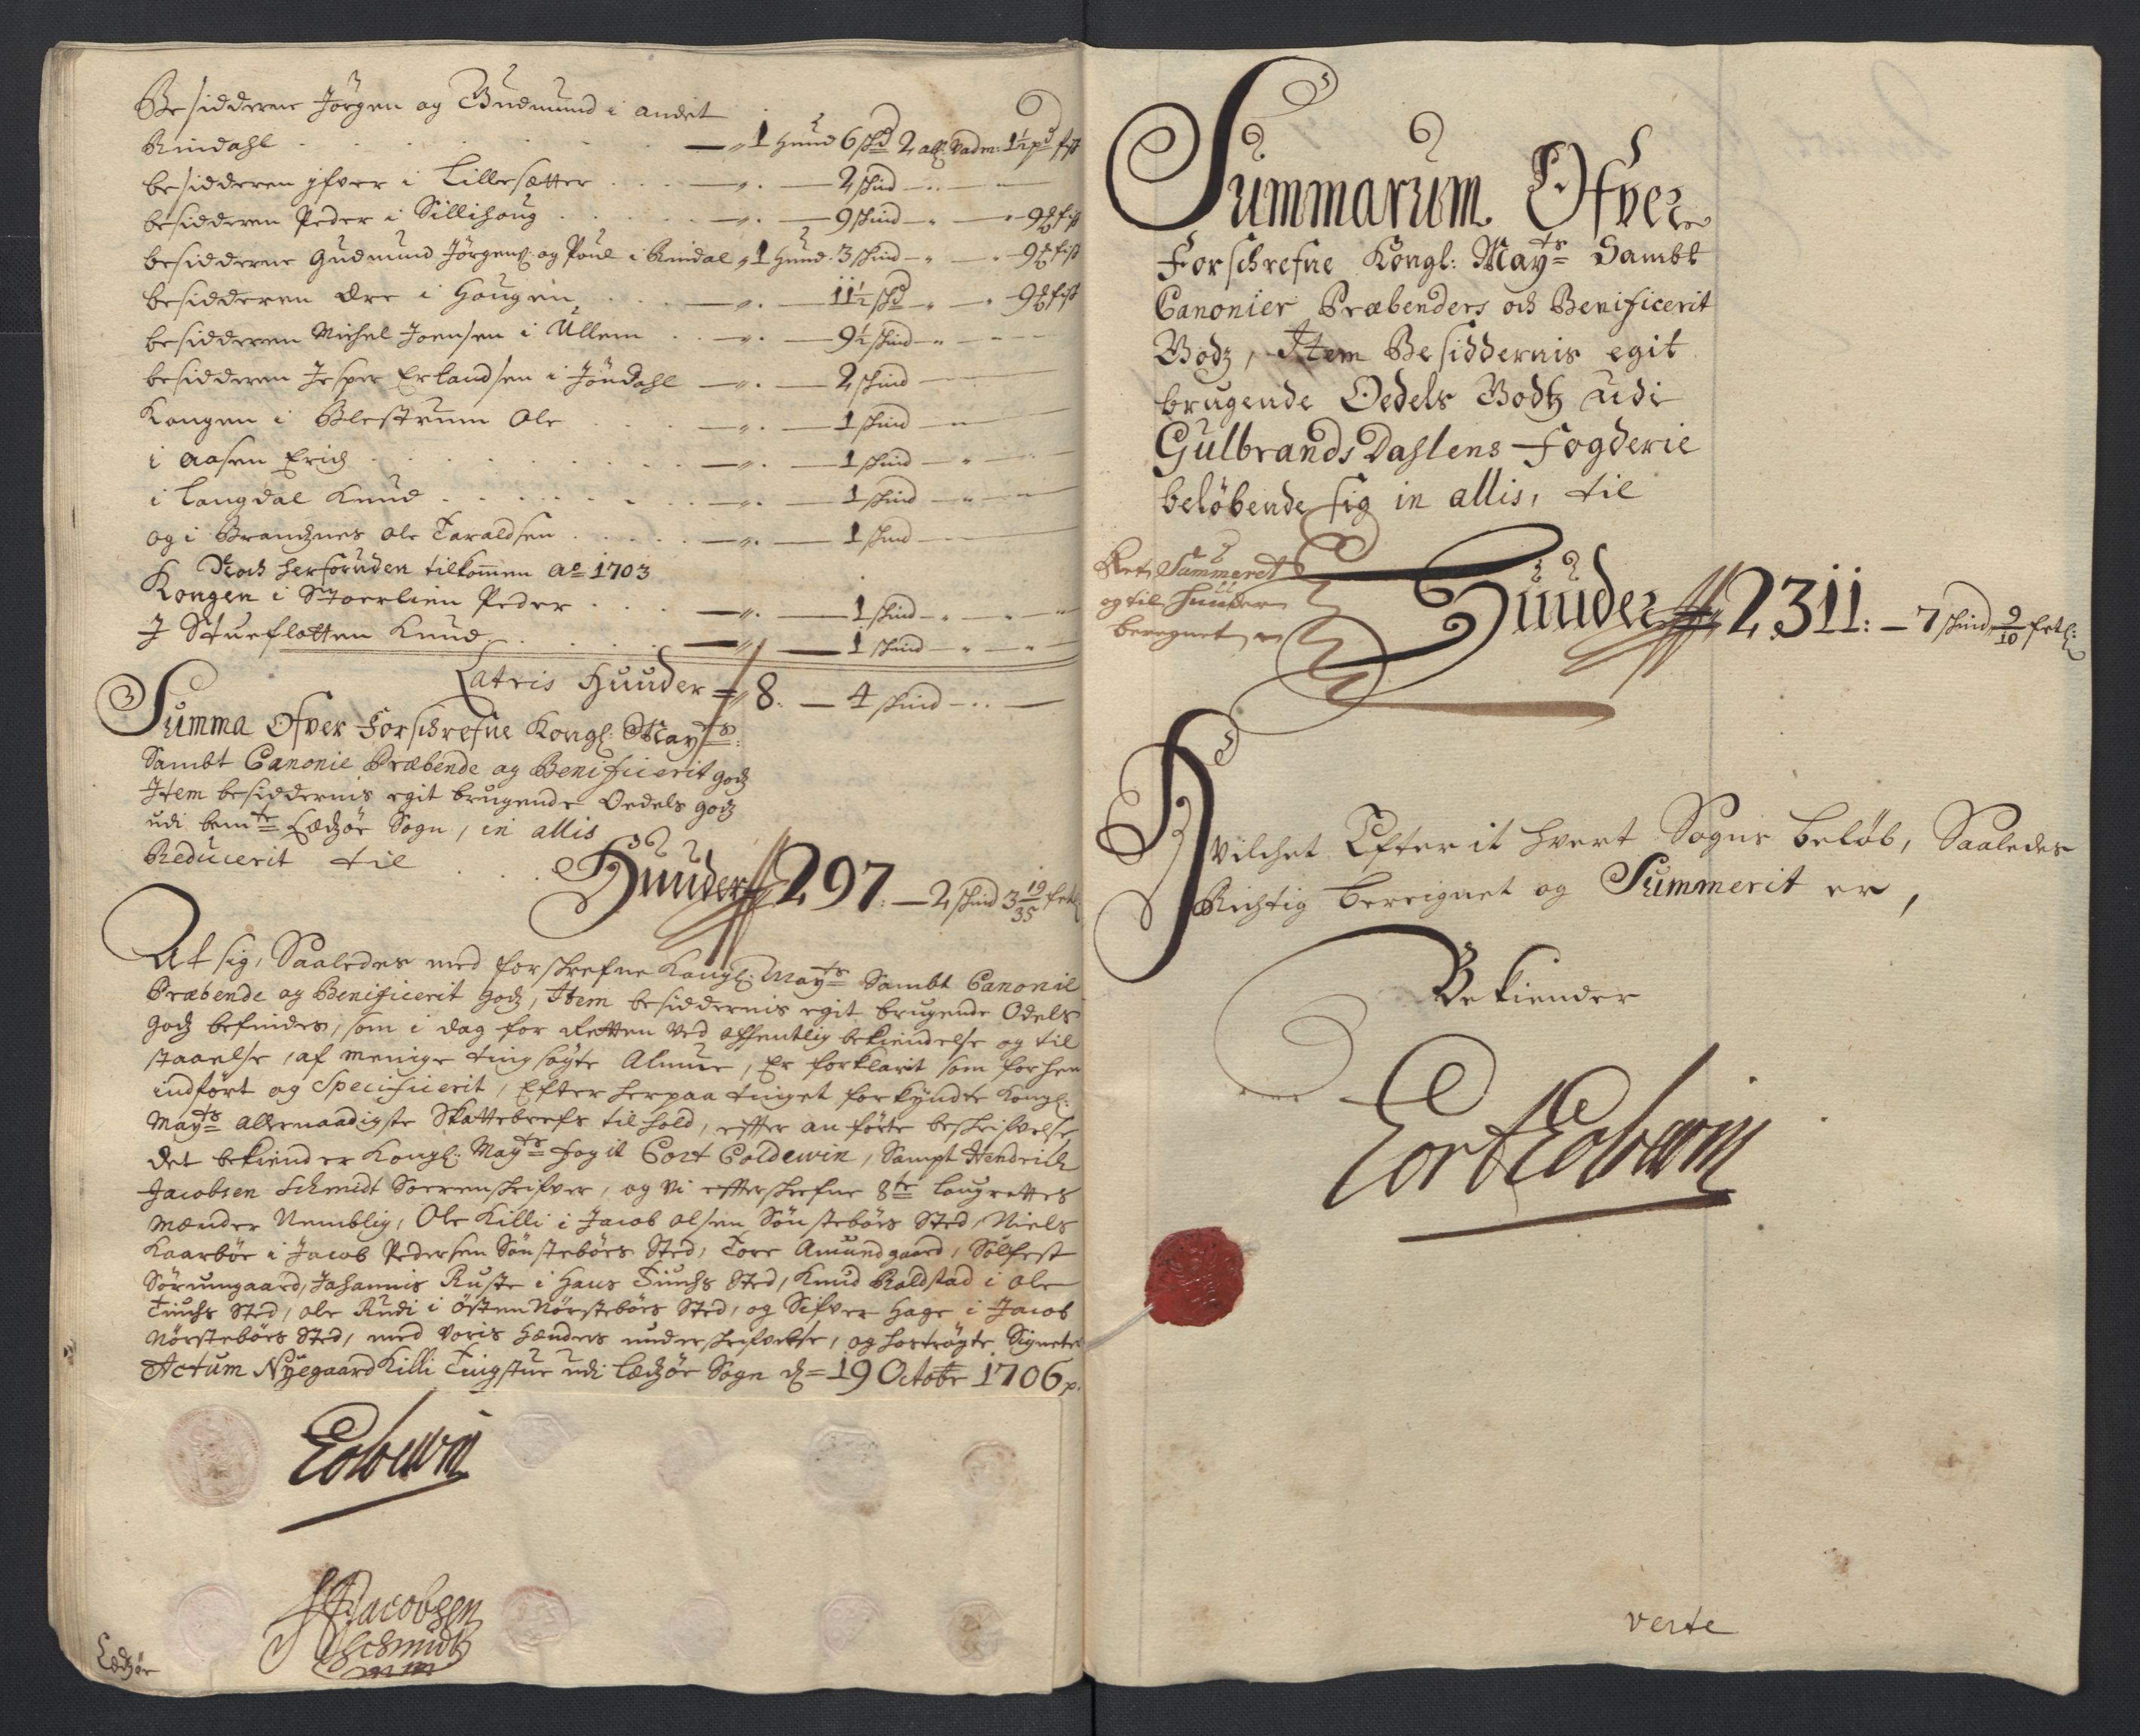 Besidderne Jörgen og Gudmund i andet
Rindahl . . . . . . — „ 1 Hund 6 sk͞d 2 all: Vadm: 1½ pd fisk
besidderen Ifver i Lillesætter . . . — „ . — 2 skind — „ — —
besidderen Peder i Sillihoug . . . — „ . — 9 skind — „ — 9 ℔ fisk
besidderne Gudmund Jörgens: og Poul i Rindal „ 1 Hund 3 skind — „ — 9 ℔ fisk
besidderen Are i Hougen . . . — „ . — 11½ sk͞d — „ — 9 ℔ fisk
besidderen Michel Joensen i Ullem . . — „ . — 9½ skind — „ — —
besidderen Jesper Erlandsen i Jöndahl — „ . — 2 skind — —
Kongen i Blestrum Ole . . . — „ . — 1 skind — „ —
i Aasen Erich . . . . . — „ . — 1 skind — „ — —
i Langdal Knud . . . . . — „ . — 1 skind — „ — „ —
og i Brandznes Ole Taraldsen . . . — „ . — 1 skind — —
Noch herforuden tilkomen Ao 1703
Kongen i Stoerlien Peder . . . — „ . — 1 skind — „ — „ — „
J Stueflotten Knud . . . . — „ — 1 skind — „ — „ —
Latris Huuder = 8. — 4 skind — . . —
Summa Ofver Forschrefne Kongl: Mayts:
Sambt Canonie Præbende og Benificerit godz
Item besiddernis egit brugende Oedels godz
udi bemte Lædzöe Sogn, in allis
Reducerit til . . . . Huuder 297: — 2 skind 3 19/35 fetl:
At sig, Saaledes med forskrefne Kongl: Mayts Sambt Canonie
Præbende og Benificerit godz, Item besiddernis egit brugende Odels
godz befindes, som i dag for Retten ved offentlig bekiendelse og til
staaelse, af menige ting sögte Almue, Er forklarit som forhen
indfört og Specificerit, Efter herpaa tinget forkyndte Kongl:
Mayts allernaadigste Skattebrefs tilhold, effter anförte beskrifvelse,
det bekiender Kongl: Mayts fogit Cort Coldewin, Sampt Hendrich
Jacobsen Schmidt Sorenskrifver, og Vi effterskrefne 8te laugrettes
Mænder Nemblig, Ole Killi i Jacob olsen Sönstebörs Sted, Niels
Kaarböe i Jacob Pedersen Sönstebörs Sted, Tore Amundgaard, Sölfest
Sörumgaard, Johannis Ruste i Hans Tiuchs Sted, Knud Raldstad i ole
Tiuchs Sted, ole Rudi i Östen Nörstebörs Sted, og Sifver Hage i Jacob
Nörstebörs Sted, med voris hænders underskrifvelse, og hoströgte Signeter
Actum Nyegaard Killi Tingstue udi Lædzöe Sogn d= 19 Octobr 1706 p.
Coldewin
HJacobsen
Schmidt
mm
Lædzöe
Summarum Ofver
Forschrefne Kongl: Mayts Sambt
Canonier Præbenders och Benificerit
Godz, Item Besiddernis egit
brugende Oedels Godtz udi
GulbrandsDahlens Fogderie
belöbende sig in allis, til
Huuder 2311: — 7 skind 9/10 fetl:
Ret Summeret
og til Huuder
beregnet
Hvilchet Efter it hvert Sogns belöb, Saaledes
Richtig bereignet og Summerit er,
Bekiender
Cort Coldewin
verte